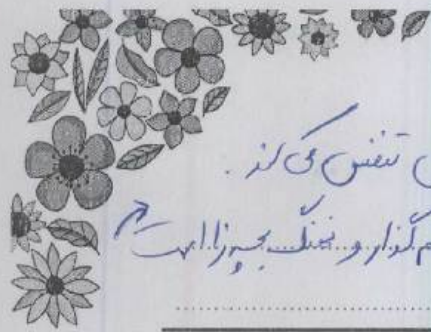 تنفس می‌کند.
گذار و نهنگ بچه‌زا است